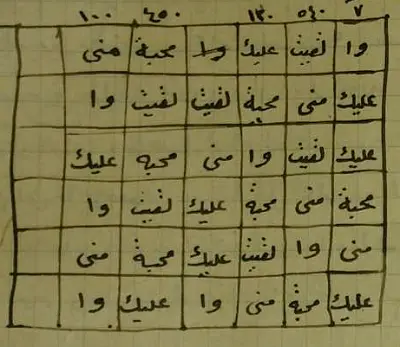 ٧ ٥٤٠ ١٣٠ ٤٥٠ ١٠٠
وا لقيت عليك وا محبة منى
عليك منى محبة لقيت لقيت وا
عليك لقيت وا منى محبه عليك
محبة منى محبة عليك لقيت وا
منى وا لقيت عليك محبة منى
عليك محبة منى وا عليك وا